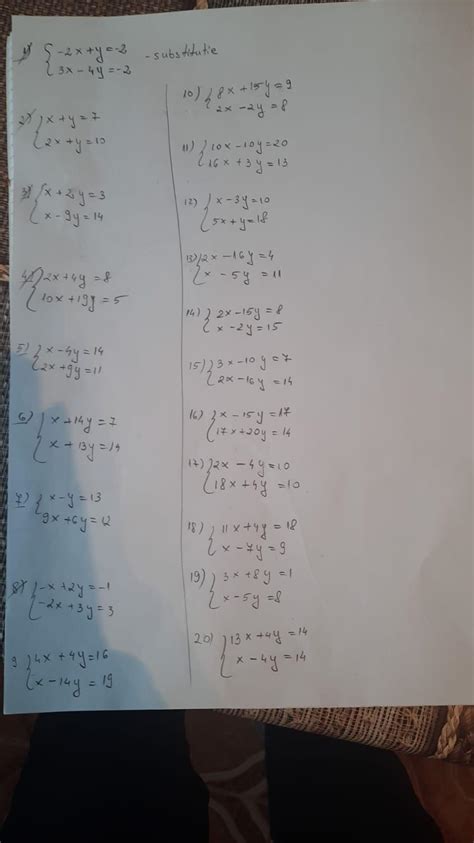 1) { -2x+y=-2 - substitutie
3x-4y=-2
2) { x+y=7
2x+y=10
3) { x+2y=3
x-9y=14
4) { 2x+4y=8
10x+19y=5
5) { x-4y=14
2x+9y=11
6) { x+14y=7
x+13y=14
7) { x-y=13
9x+6y=12
8) { -x+2y=-1
-2x+3y=3
9 { 4x+4y=16
x-14y=19
10) { 8x+15y=9
2x-2y=8
11) { 10x-10y=20
16x+3y=13
12) { x-3y=10
5x+y=18
13) { 2x-16y=4
x-5y=11
14) { 2x-15y=8
x-2y=15
15) { 3x-10y=7
2x-16y=14
16) { x-15y=17
17x+20y=14
17) { 2x-4y=10
18x+4y=10
18) { 11x+4y=18
x-7y=9
19) { 3x+8y=1
x-5y=8
20) { 13x+4y=14
x-4y=14